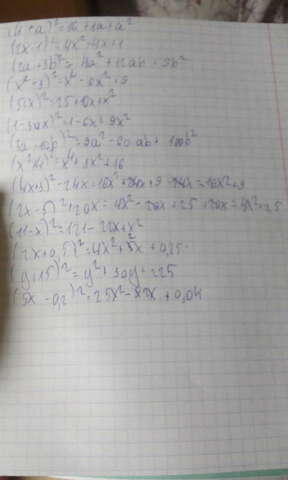 (4+a)²=16+8a+a²
(2x-1)²=4x²-4x+1
(2a+3b)²=4a²+12ab+9b²
(x²-3)²=x⁴-6x²+9
(5+x)²=25+10x+x²
(1-3x)²=1-6x+9x²
(3a-10b)²=9a²-60ab+100b²
(x²+4)²=x⁴+8x²+16
(4x+3)²-24x=16x²+24x+9-24x=16x²+9
(2x-5)²+20x=4x²-20x+25+20x=4x²+25
(11-x)²=121-22x+x²
(2x+0,5)²=4x²+2x+0,25
(y+15)²=y²+30y+225
(5x-0,2)²=25x²-2x+0,04